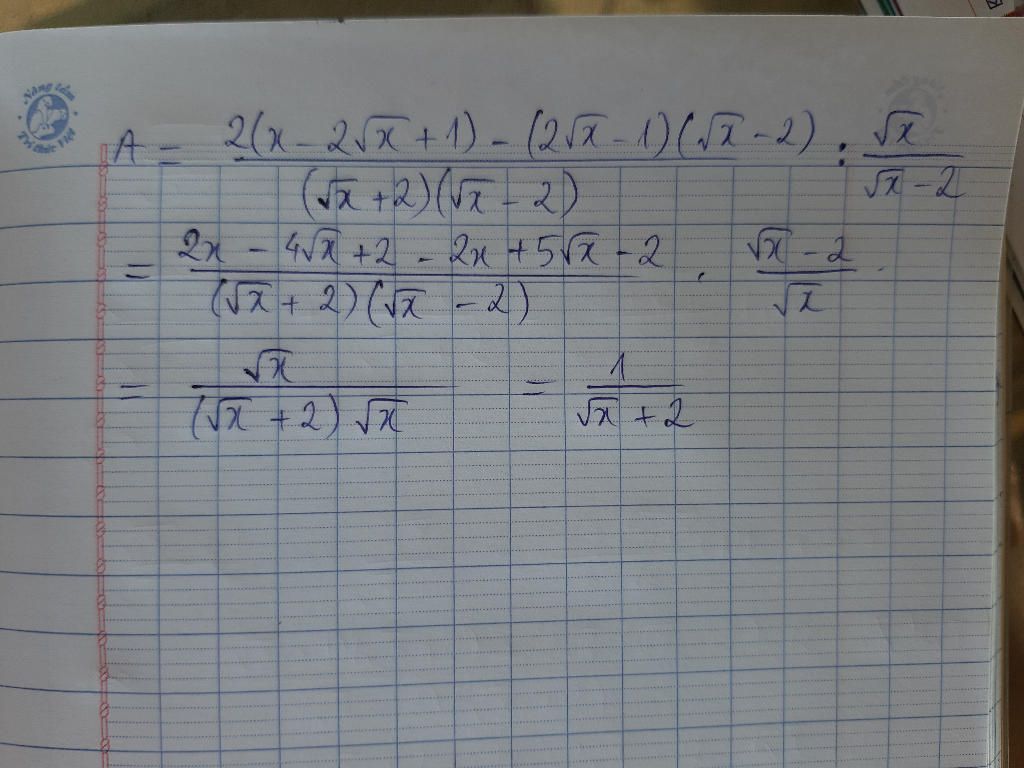 Nâng tầm
Tri thức Việt
A = \frac{2(x - 2\sqrt{x} + 1) - (2\sqrt{x} - 1)(\sqrt{x} - 2)}{(\sqrt{x} + 2)(\sqrt{x} - 2)} : \frac{\sqrt{x}}{\sqrt{x} - 2}
= \frac{2x - 4\sqrt{x} + 2 - 2x + 5\sqrt{x} - 2}{(\sqrt{x} + 2)(\sqrt{x} - 2)} . \frac{\sqrt{x} - 2}{\sqrt{x}}
= \frac{\sqrt{x}}{(\sqrt{x} + 2)\sqrt{x}} = \frac{1}{\sqrt{x} + 2}